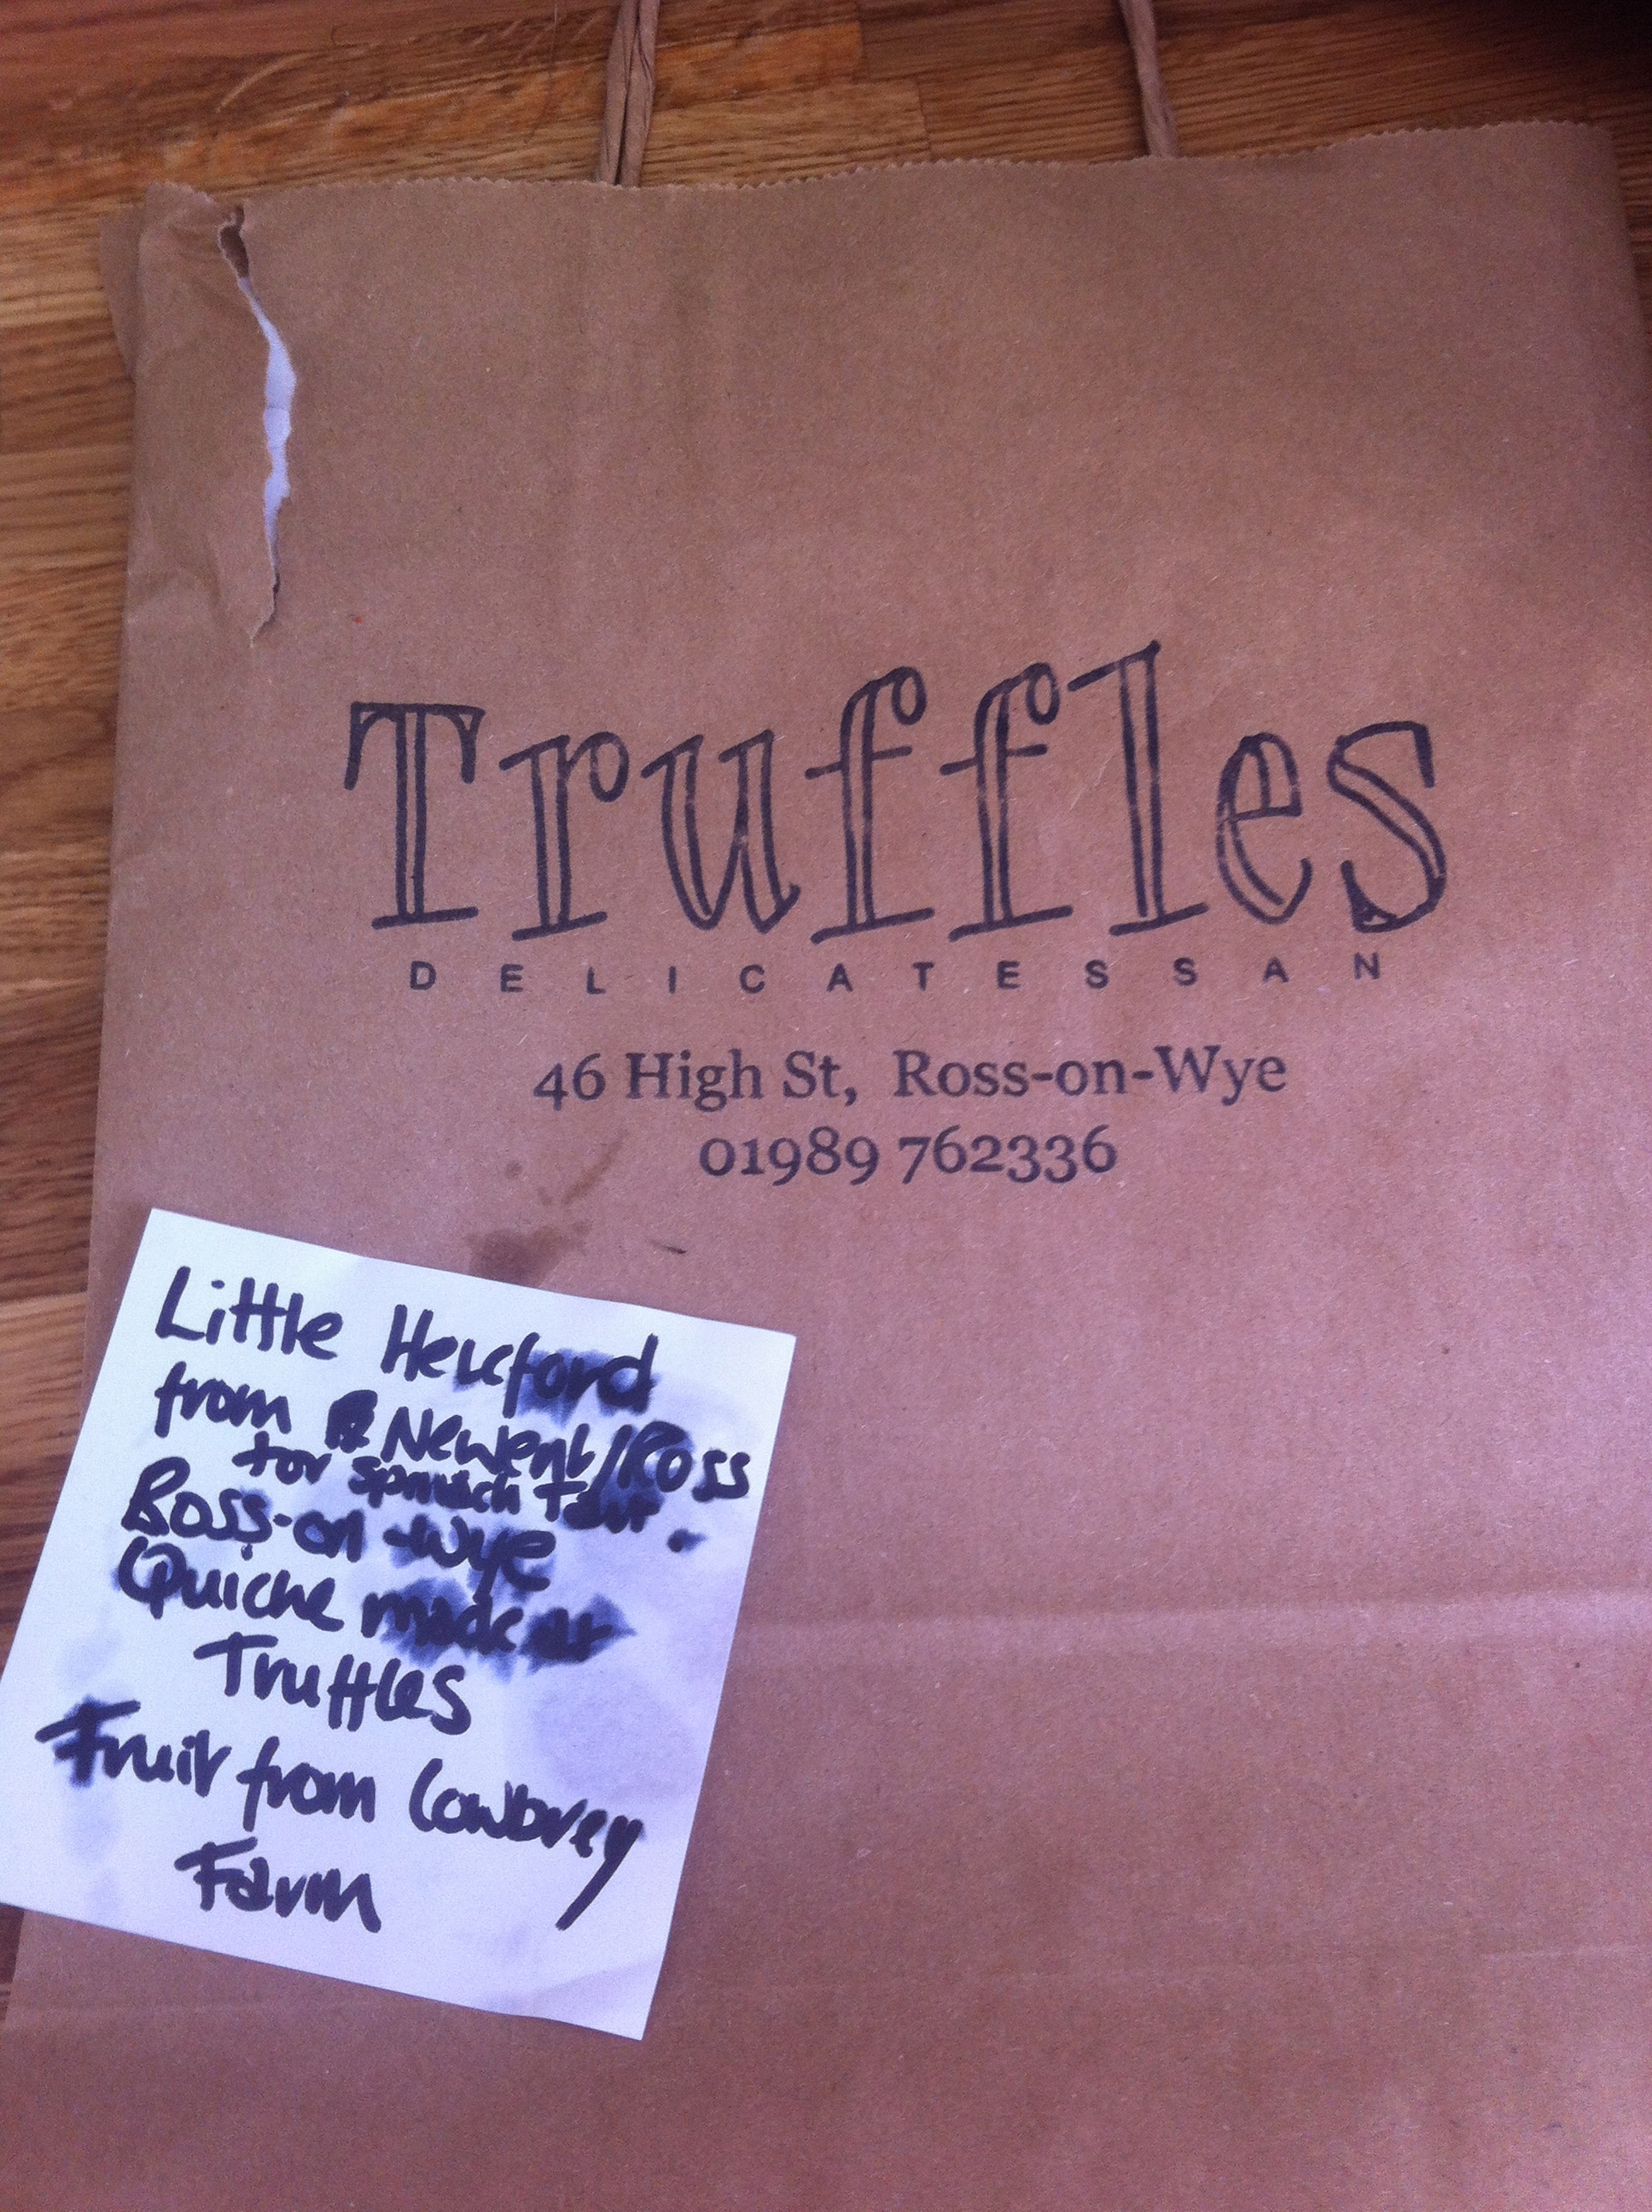 Truffles
DELICATESSAN
46 High St, Ross-on-Wye
01989 762336
Little Hereford
from Newent/Ross
for spinach tart.
Ross-on-Wye
Quiche made at
Truffles
Fruit from Cowbrey
Farm